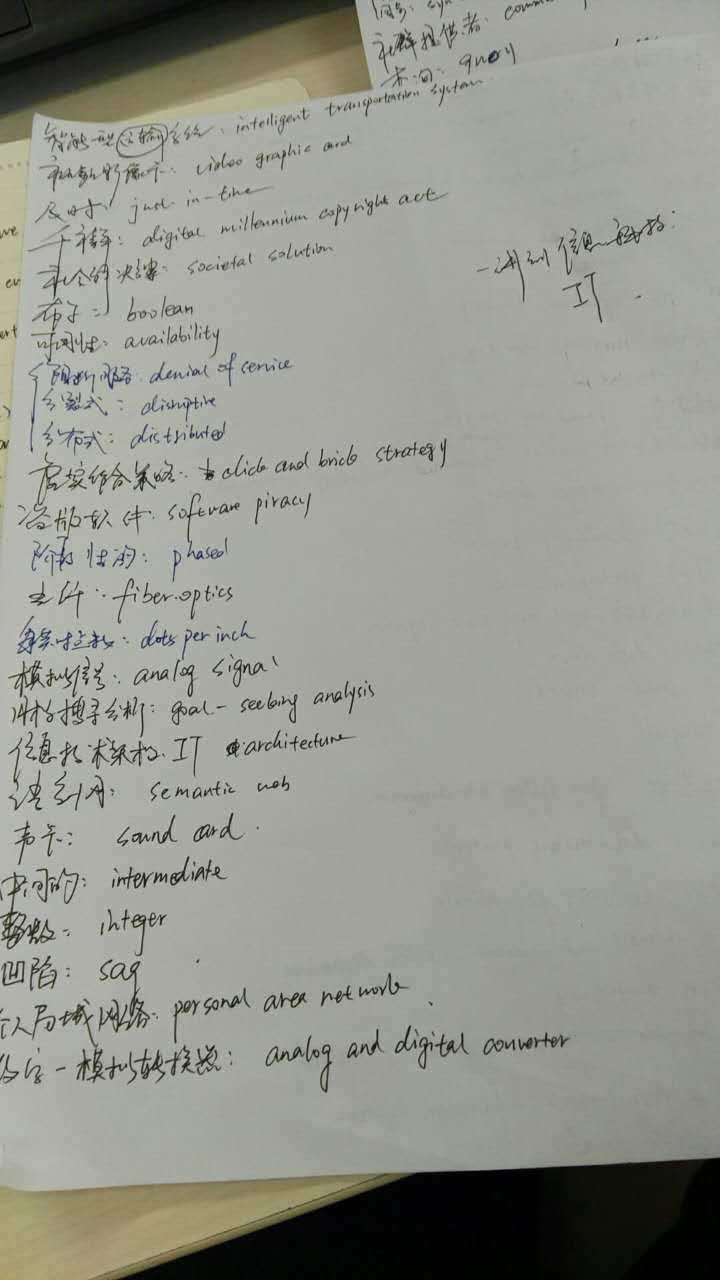 社群提供者: comm
查询: query
智能型运输系统: intelligent transportation system
影像卡: video graphic card
及时: just-in-time
千禧年: digital millennium copyright act
社会的决策: societal solution
布尔: boolean
可用性: availability
阻断服务: denial of service
分裂式: disruptive
分布式: distributed
虚实结合策略: click and brick strategy
盗版软件: software piracy
阶段性的: phased
光纤: fiber optics
dots per inch
模拟信号: analog signal
目标搜寻分析: goal-seeking analysis
信息技术架构: IT architecture
semantic web
声卡: sound card
中间的: intermediate
整数: integer
凹陷: sag
个人局域网络: personal area network
数字-模拟转换器: analog and digital converter
一讲到信息科技:
IT